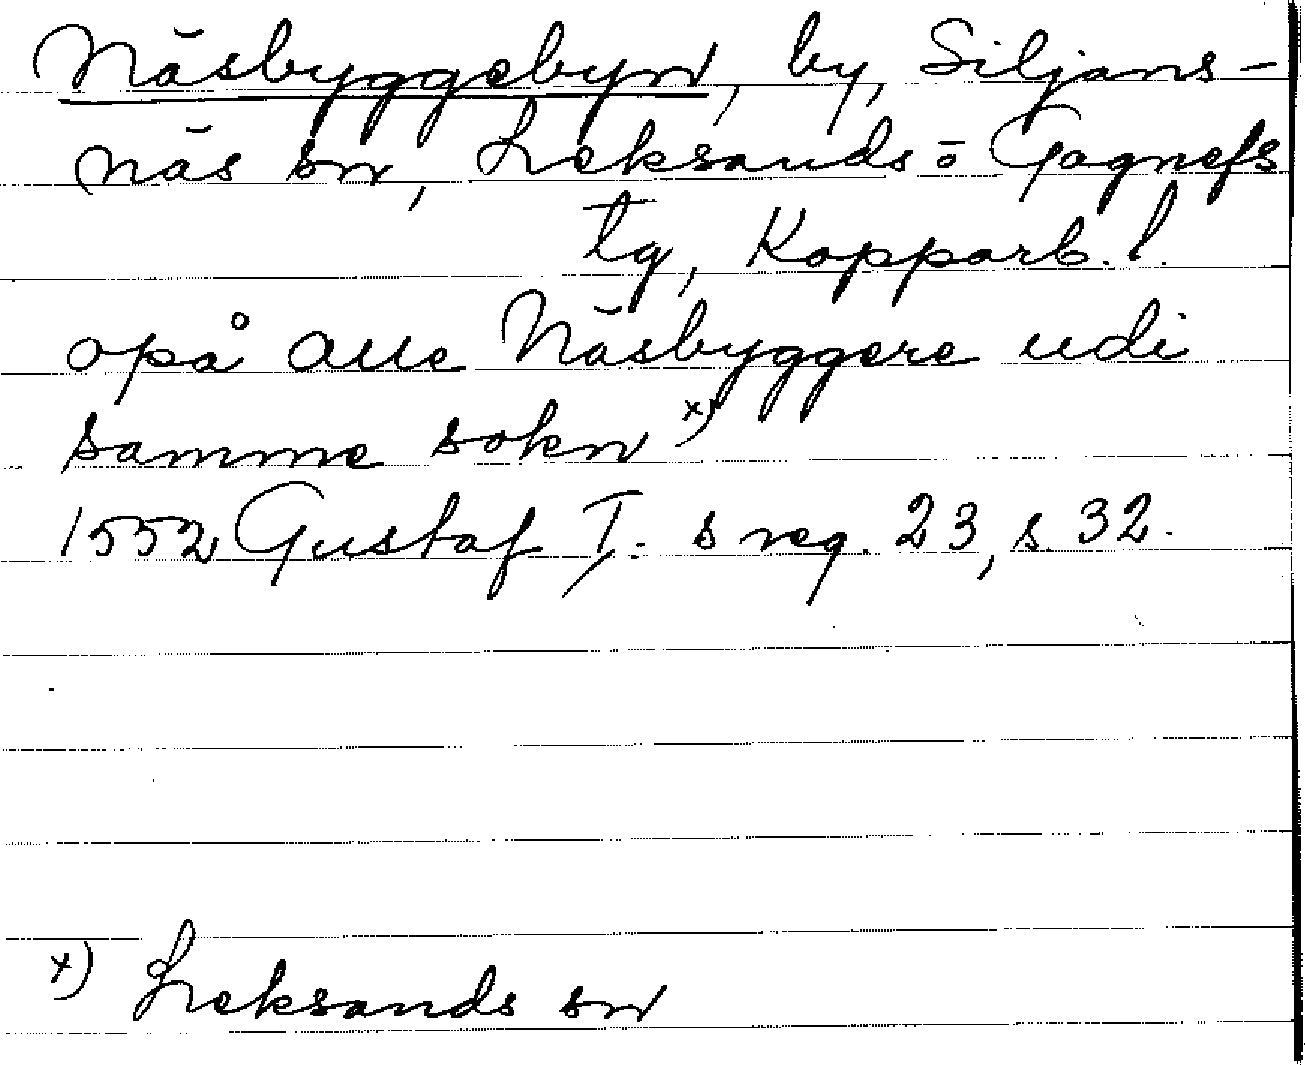 Näsbyggebyn, by, Siljans-
näs sn, Leksands o Gagnefs
tg, Kopparb. l.
opå alle Näsbyggere udi
samme sokn x)
1552 Gustaf I: s reg. 23, s. 32.
x) Leksands sn